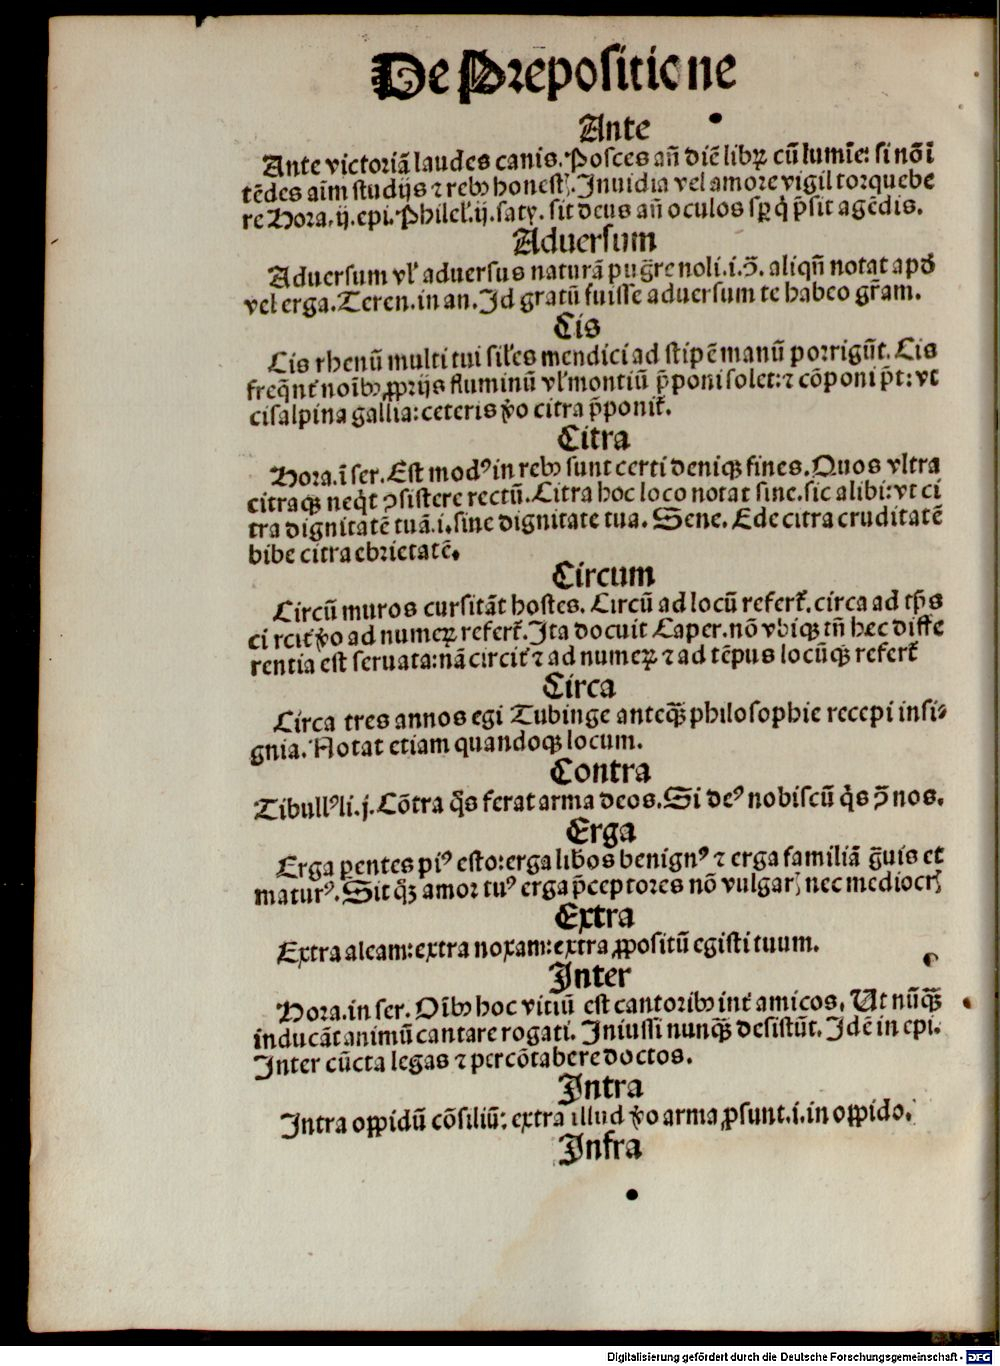 De Prepositione
Ante
Ante victoriā laudes canis. Posces an̄ diē libꝝ cū lumīe: si nōī
tēdes aīm studijs ⁊ rebꝰ honestꝭ. Inuidia vel amore vigil torquebe
re Hora. ij. epi. Philel. ij. saty. sit deus an̄ oculos sꝑ qͥ p̄sit agēdis.
Aduersum
Aduersum vlʼ aduersus naturā pugr̄e noli. i. ↄ̄. aliqn̄ notat apđ
vel erga. Teren. in an. Id gratū fuisse aduersum te habeo gr̄am.
Cis
Cis rhenū multi tui siles mendici ad stipē manū porrigūt. Cis
freq̄nt noībꝰ ꝓprijs fluminū vlʼ montiū p̄poni solet: ⁊ cōponi p̄t: vt
cisalpina gallia: ceteris ꝟo citra p̄ponit̃.
Citra
Hora. ī ser. Est modꝰ in rebꝰ sunt certi deniqꝫ fines. Quos vltra
citraqꝫ neqͥt ↄsistere rectū. Citra hoc loco notat sine. sic alibi: vt ci
tra dignitatē tuā. i. sine dignitate tua. Sene. Ede citra cruditatē
bibe citra ebrietatē.
Circum
Circū muros cursitāt hostes. Circū ad locū refert̃. circa ad tp̄s
ci rcit̃ ꝟo ad numeꝝ refert̃. Ita docuit Caper. nō vbiqꝫ tn̄ hec diffe
rentia est seruata: nā circit̃ ⁊ ad numeꝝ ⁊ ad tēpus locūqꝫ refert̃
Circa
Circa tres annos egi Tubinge anteqꝫ̄ philosophie recepi insi⸗
gnia. Notat etiam quandoqꝫ locum.
Contra
Tibullꝰ li. j. Cōtra q̄s ferat arma deos. Si deꝰ nobiscū q̄s ↄ̄ nos.
Erga
Erga ꝑentes piꝰ esto: erga libos benignꝰ ⁊ erga familiā ḡuis et
maturꝰ. Sit qꝫ̄ amor tuꝰ erga p̄ceptores nō vulgarꝭ nec mediocrꝭ
Extra
Extra aleam: extra noxam: extra ꝓpositū egisti tuum.
Inter
Hora. in ser. Oībꝰ hoc vitiū est cantoribꝰ int̃ amicos. Ut nūqꝫ̄
inducāt animū cantare rogati. Iniussi nunqꝫ̄ desistūt. Idē in epi.
Inter cūcta legas ⁊ percōtabere doctos.
Intra
Intra oꝓpidū cōsiliū: extra illud ꝟo arma ꝓsunt. i. in oꝓpido.
Infra
Digitalisierung gefördert durch die Deutsche Forschungsgemeinschaft - DFG